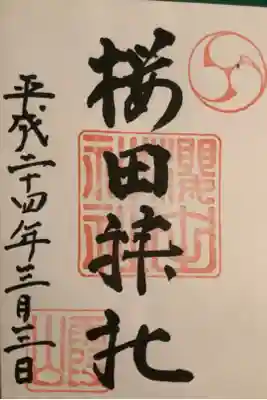 桜田神社
平成二十四年三月三日
櫻田
神社
霞山